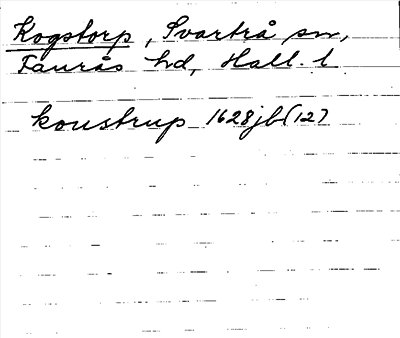 Kogstorp, Svartrå sn,
Faurås hd, Hall. l.
koustrup 1628 jb (12)